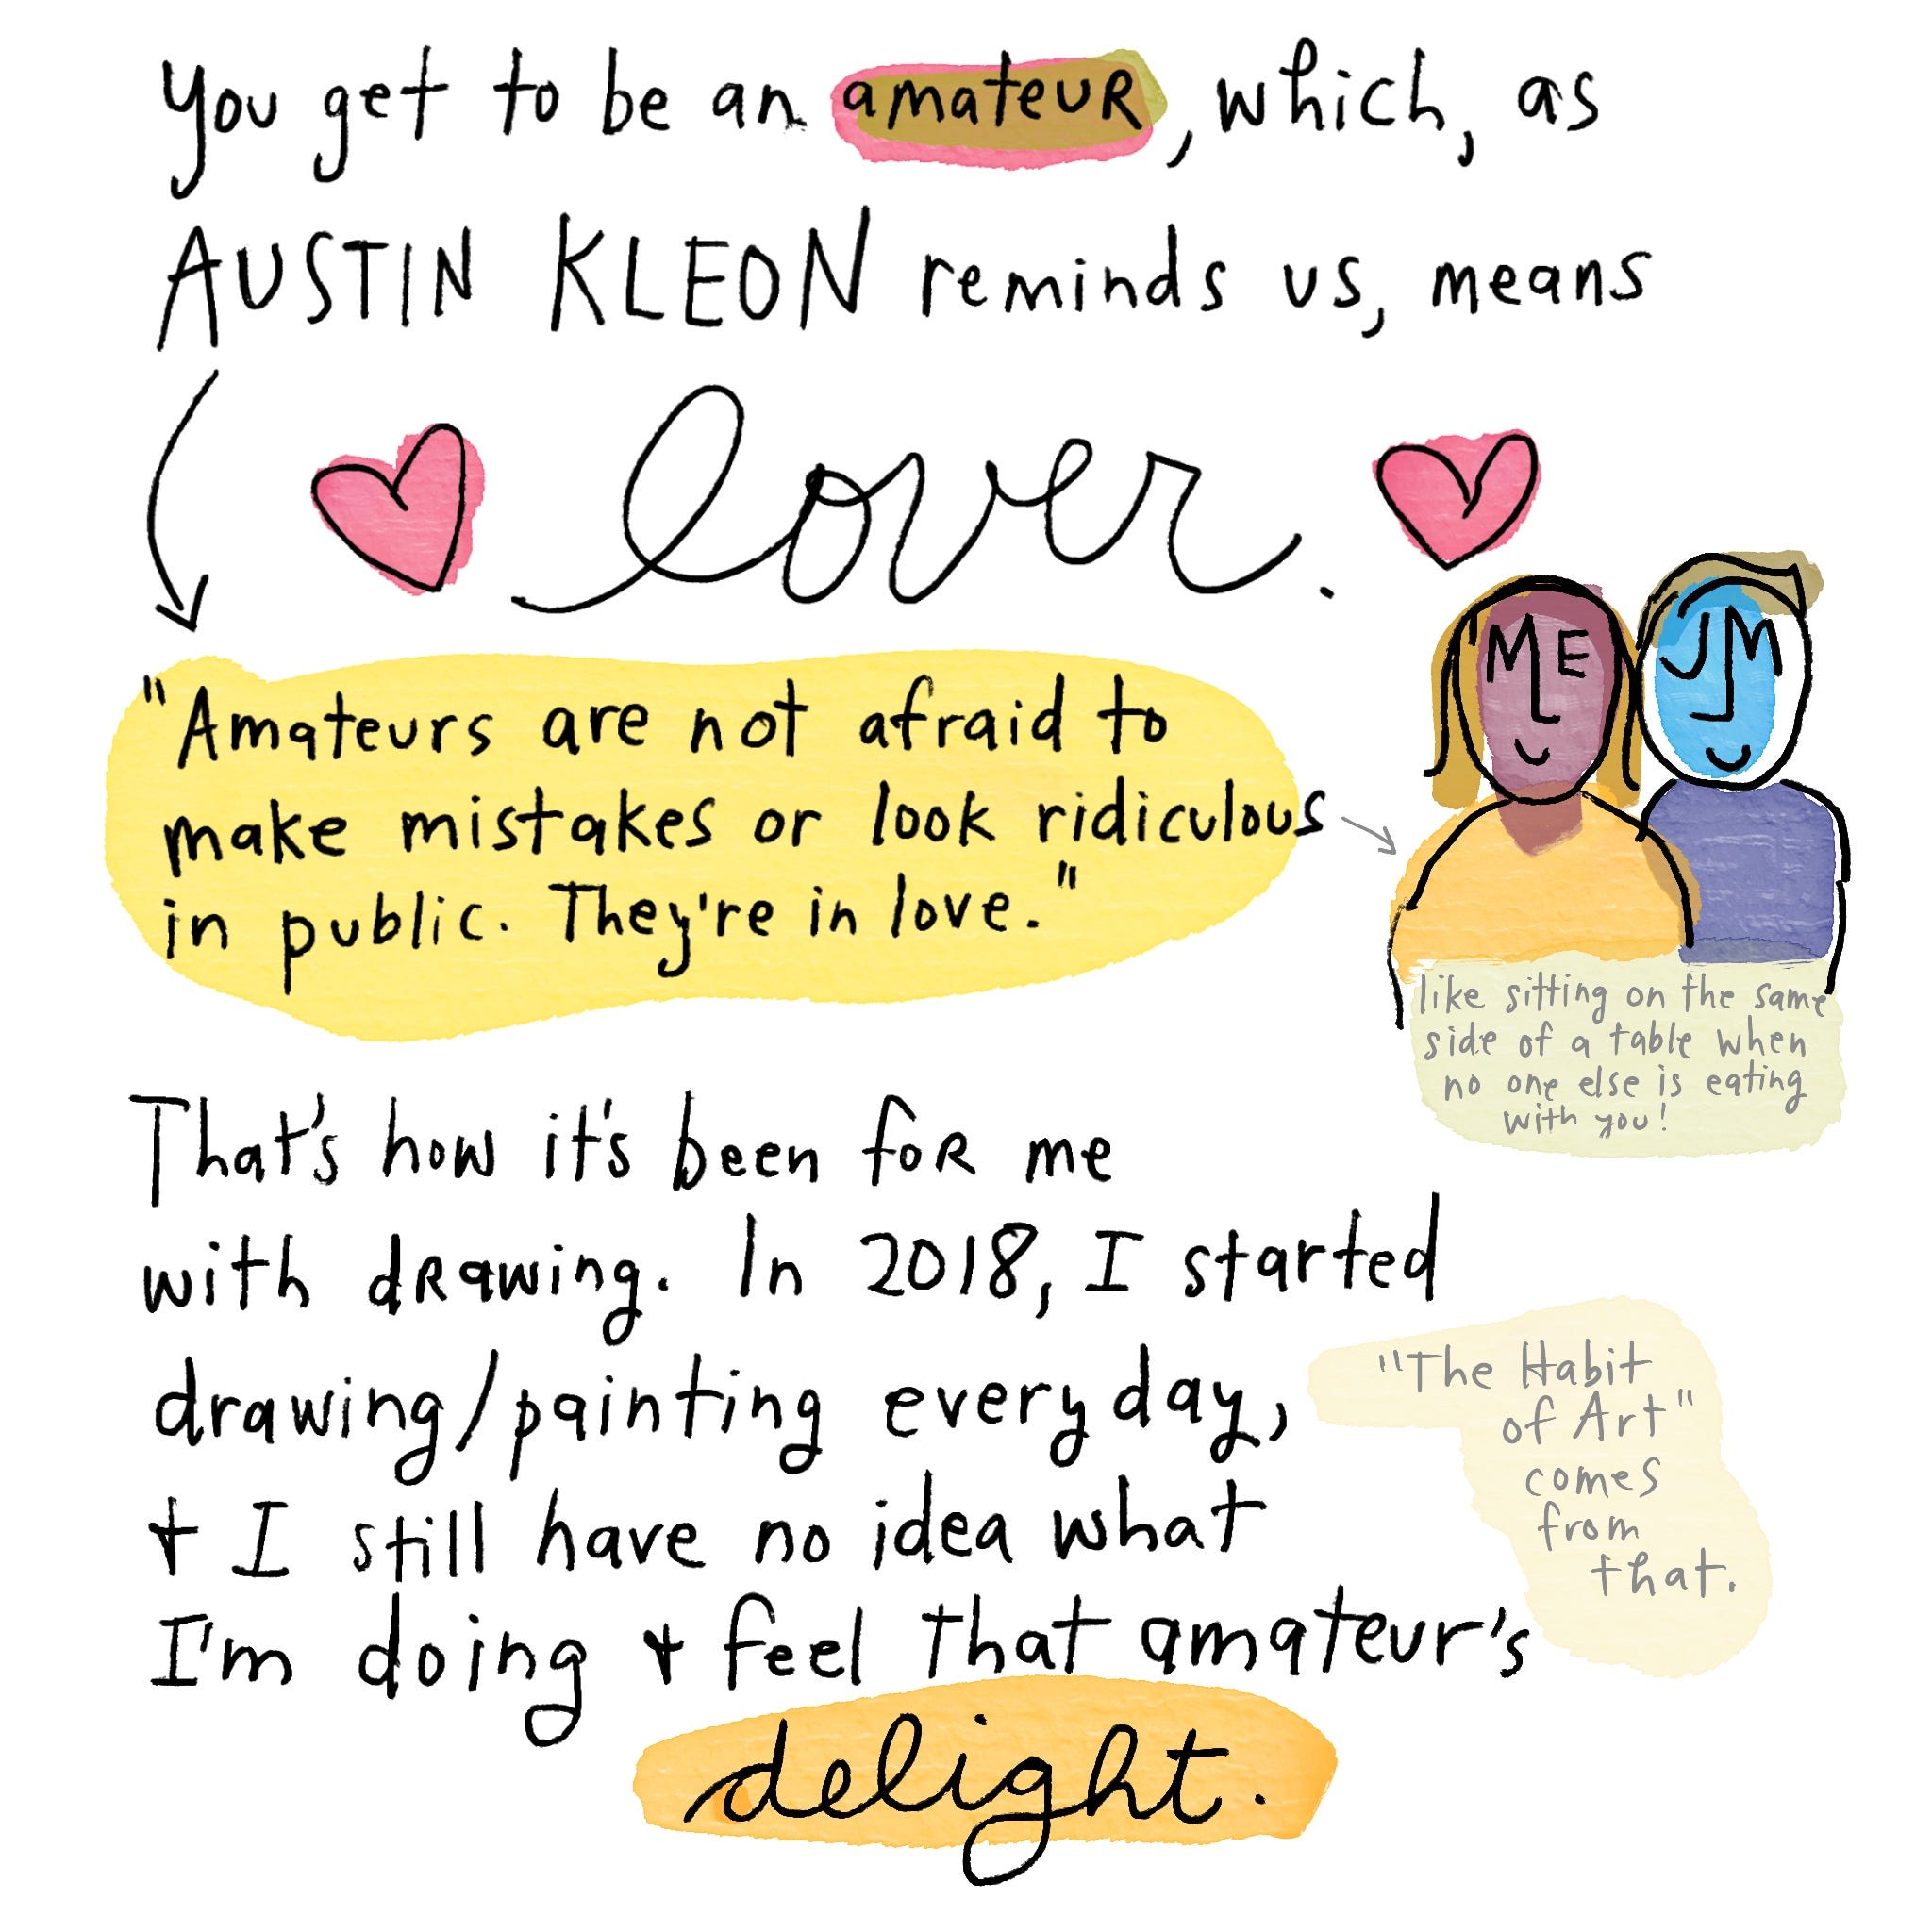 You get to be an amateUR, which, as
AUSTIN KLEON reminds us, means
lover.
"Amateurs are not afraid to
make mistakes or look ridiculous
in public. They're in love."
ME JM
like sitting on the same
side of a table when
no one else is eating
with you!
That's how it's been foR me
with dRawing. In 2018, I started
drawing/painting every day,
+ I still have no idea what
I'm doing + feel that amateur's
delight.
"The Habit
of Art"
comes
from
that.